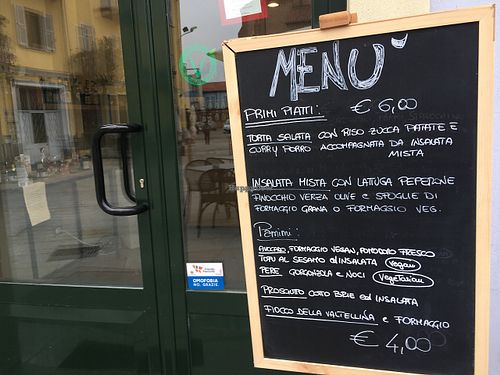 MENÙ
PRIMI PIATTI: € 6,00
TORTA SALATA CON RISO ZUCCA PATATE E
CURRY PORRO ACCOMPAGNATA DA INSALATA
MISTA
INSALATA MISTA CON LATTUGA PEPERONE
FINOCCHIO VERZA OLIVE E SFOGLIE DI
FORMAGGIO GRANA O FORMAGGIO VEG.
Panini:
AVOCADO, FORMAGGIO VEGAN, POMODORO FRESCO
TOFU AL SESAMO ed INSALATA Vegan
PERE GORGONZOLA E NOCI Vegetarian
PROSCIUTTO COTTO BRIE ed INSALATA
FIOCCO DELLA VALTELLINA E FORMAGGIO
€ 4,00
OMOFOBIA
NO, GRAZIE.